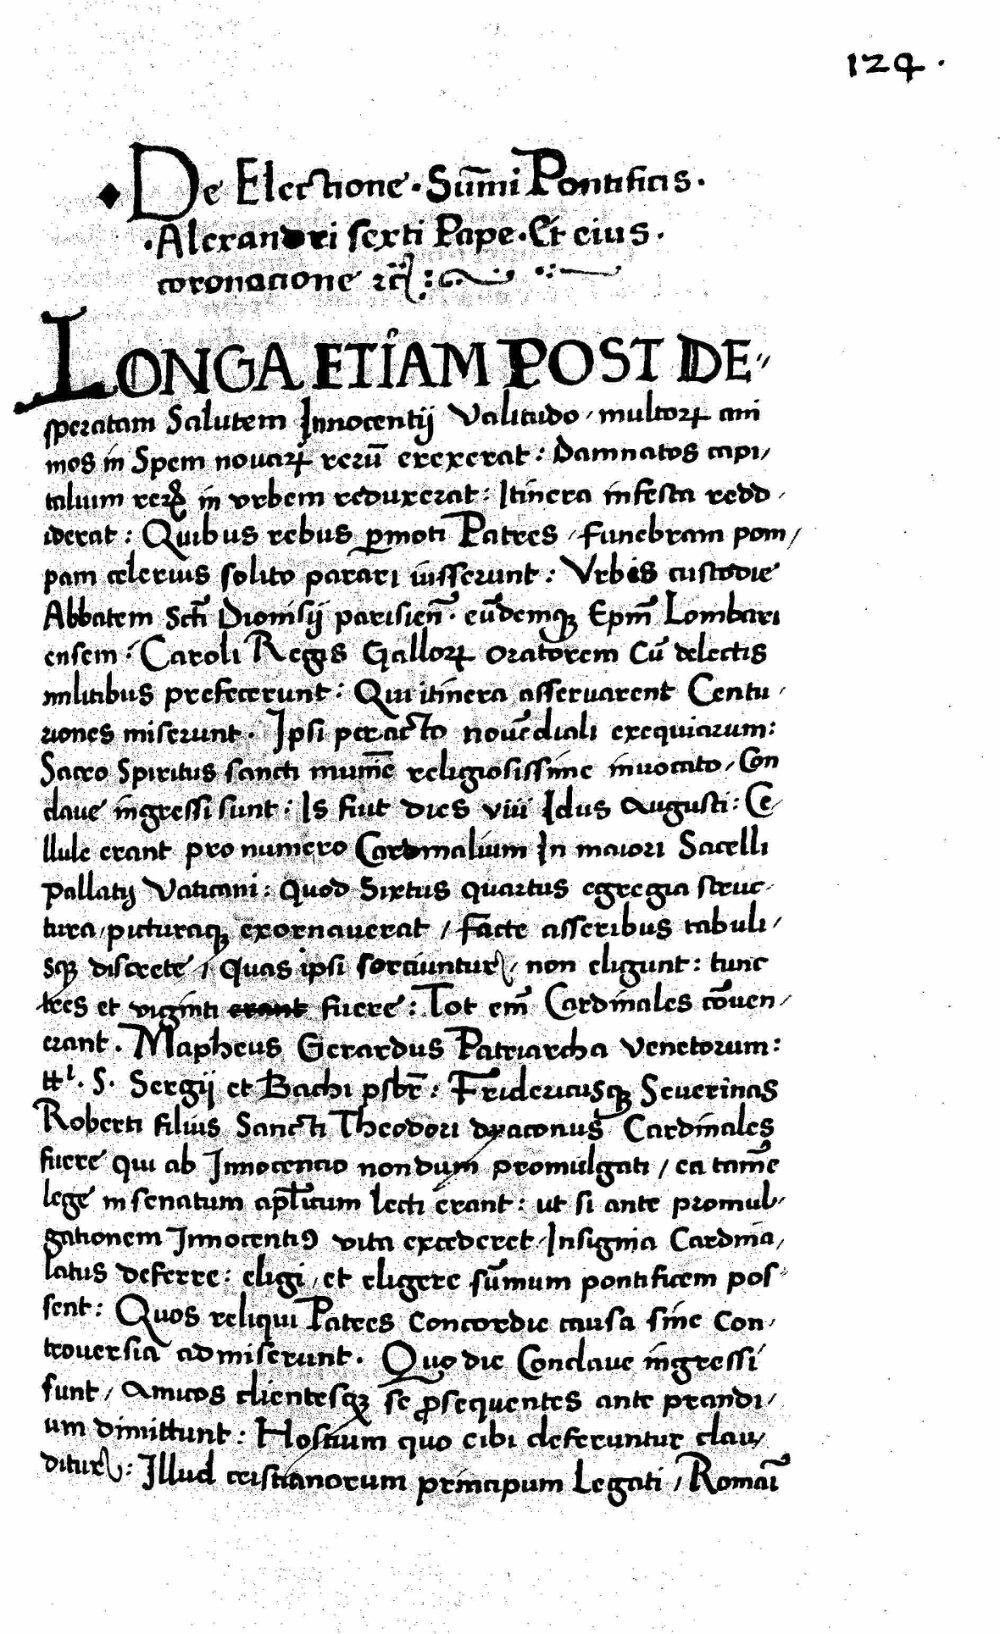 124.
De Electione. Sūmi Pontificis.
.Alexandri sexti Pape. Et eius.
coronacione
LONGA ETIAM POST DE⸗
speratam Salutem Innocentij Valitudo / multoꝝ ani
mos in Spem novaꝝ rerū erexerat : Damnatos capi/
talium in vrbem reduxerat : Itinera infesta redd/
iderat : Quibus rebus ꝑmoti Patres / funebram pom/
pam celerius solito parari iusserunt : Vrbis custodie
Abbatem Scti Dionisij parisieñ. eūdemqꝫ Epm̄ Lombari
ensem : Caroli Regis Galloꝝ oratorem Cū delectis
militibus prefecerunt : Qui itinera asseruarent Centu/
riones miserunt. Ipsi peracto novēdiali exequiarum :
Sacro Spiritus sancti numīe religiosissime invocato / Con
claue ingressi sunt : Is fuit dies viii Idus Augusti : Ce/
llule erant pro numero Cardinalium In maiori Sacelli
Pallatij Vaticani : Quod Sixtus quartus egregia struc⸗
tura / picturaqꝫ exornauerat / facte asseribus tabuli/
sqꝫ discrete / Quas ipsi sorciuntur / non eligunt : tunc
tres et viginti erant fuere : Tot em̄ Cardinales cōuen/
erant. Mapheus Gerardus Patriarcha Venetorum :
ttl. S. Sergij et Bachi psbr̄ : Fridericusqꝫ Severinas
Roberti filius Sancti Theodori dyaconus Cardinales
fuere qui ab Innocencio nondum promulgati / ea tamē
lege in senatum apl̄icum lecti erant : ut si ante promul/
gationem Innocentiꝰ vita excederet / Insignia Cardina/
latus deferre : eligi / et eligere sūmum pontificem pos⸗
sent : Quos reliqui Patres Concordie causa sine con/
trouersia admiserunt. Quo die Conclaue ingressi
sunt / Amicos clientesqꝫ se ꝓsequentes ante prandi/
um dimittunt : Hostium quo cibi deferuntur clau/
ditur : Illud cristianorum principum Legati / Romaī